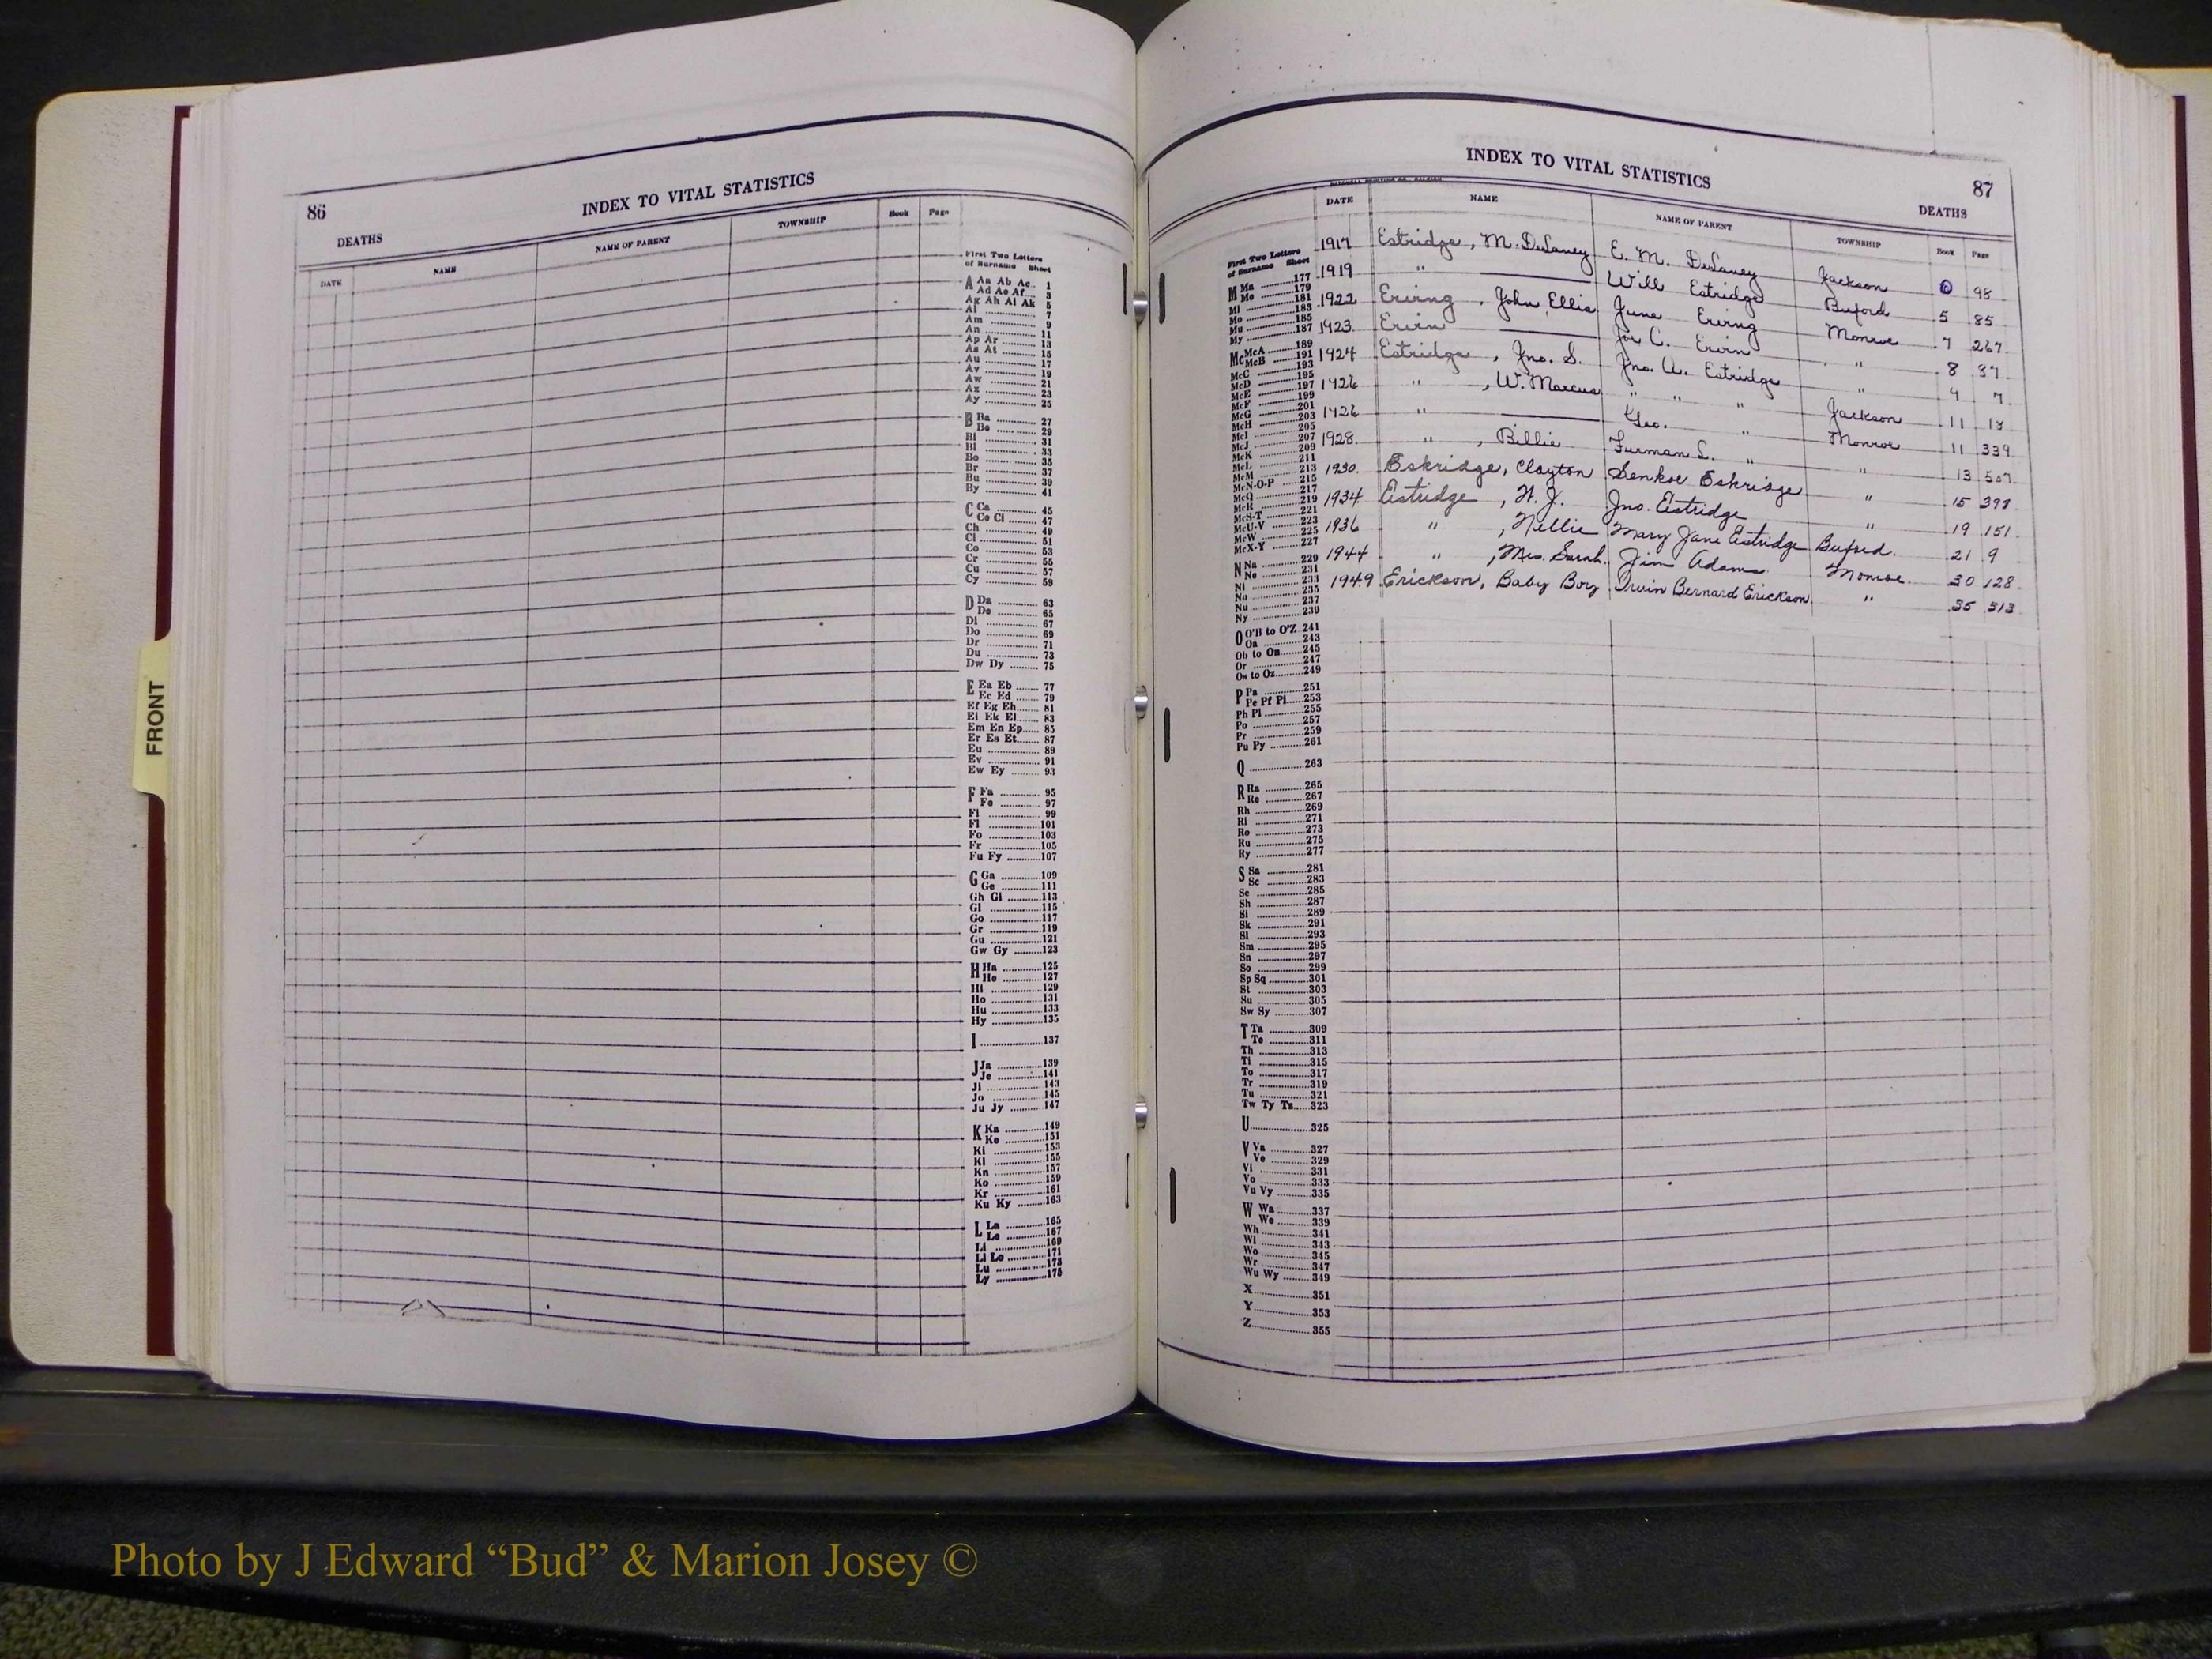 86
INDEX TO VITAL STATISTICS
DEATHS
DATE NAME NAME OF PARENT TOWNSHIP Book Page
First Two Letters
of Surname Sheet
A Aa Ab Ac.. 1
Ad Ae Af.... 3
Ag Ah Ai Ak 5
Al ................ 7
Am ................ 9
An ................ 11
Ap Ar ............ 13
As At ............ 15
Au ................ 17
Av ................ 19
Aw ................ 21
Ax ................ 23
Ay ................ 25
B Ba ............ 27
Be ............ 29
Bi ................ 31
Bl ................ 33
Bo ................ 35
Br ................ 37
Bu ................ 39
By ................ 41
C Ca ............ 45
Ce Ci ........ 47
Ch ................ 49
Cl ................ 51
Co ................ 53
Cr ................ 55
Cu ................ 57
Cy ................ 59
D Da ............ 63
De ............ 65
Di ................ 67
Do ................ 69
Dr ................ 71
Du ................ 73
Dw Dy ........ 75
E Ea Eb ........ 77
Ec Ed ........ 79
Ef Eg Eh...... 81
Ei Ek El....... 83
Em En Ep..... 85
Er Es Et....... 87
Eu ................ 89
Ev ................ 91
Ew Ey ........ 93
F Fa ............ 95
Fe ............ 97
Fi ................ 99
Fl ................ 101
Fo ................ 103
Fr ................ 105
Fu Fy ..........107
G Ga ............109
Ge ............111
Gh Gi ..........113
Gl ................115
Go ................117
Gr ................119
Gu ................121
Gw Gy ..........123
H Ha ............125
He ............127
Hi ................129
Ho ................131
Hu ................133
Hy ................135
I ................137
J Ja ............139
Je ............141
Ji ................143
Jo ................145
Ju Jy ..........147
K Ka ............149
Ke ............151
Ki ................153
Kl ................155
Kn ................157
Ko ................159
Kr ................161
Ku Ky ..........163
L La ............165
Le ............167
Li ................169
Ll Lo ............171
Lu ................173
Ly ................175
FRONT
INDEX TO VITAL STATISTICS
87
DEATHS
DATE NAME NAME OF PARENT TOWNSHIP Book Page
1917 Estridge, M. DeLaney E. M. DeLaney Jackson 98
1919 " Will Estridge Buford 5 85
1922 Erving, John Ellis June Erving Monroe 7 267
1923 Ervin Joe C. Ervin " 8 37
1924 Estridge, Jno. S. Jno. A. Estridge " 9 7
1926 ", W. Marcus " " " Jackson 11 18
1926 " Geo. " Monroe 11 339
1928 ", Billie Furman L. " " 13 507
1930 Eskridge, Clayton Senkoe Eskridge " 15 398
1934 Estridge, H. J. Jno. Estridge " 19 151
1936 ", Nellie Mary Jane Estridge Buford 21 9
1944 ", Mrs. Sarah Jim Adams Monroe 30 128
1949 Erickson, Baby Boy Irvin Bernard Erickson " 35 313
First Two Letters
of Surname Sheet
M Ma ........177
Me ........179
Mi ............181
Mo ............183
Mu ............185
My ............187
Mc McA ........189
McB ........191
McC ............193
McD ............195
McE ............197
McF ............199
McG ............201
McH ............203
McI ............205
McJ ............207
McK ............209
McL ............211
McM ............213
McN-O-P ......215
McQ ............217
McR ............219
McS-T ..........221
McU-V ..........223
McW ............225
McX-Y ..........227
N Na ............229
Ne ............231
Ni ................233
No ................235
Nu ................237
Ny ................239
O O'B to O'Z. 241
Oa ............243
Ob to On.......245
Or ................247
Os to Oz........249
P Pa ............251
Pe Pf Pi.....253
Ph Pl ..........255
Po ................257
Pr ................259
Pu Py ..........261
Q ................263
R Ra ............265
Re ............267
Rh ................269
Ri ................271
Ro ................273
Ru ................275
Ry ................277
S Sa ............281
Sc ............283
Se ................285
Sh ................287
Si ................289
Sk ................291
Sl ................293
Sm ................295
Sn ................297
So ................299
Sp Sq ..........301
St ................303
Su ................305
Sw Sy ..........307
T Ta ............309
Te ............311
Th ................313
Ti ................315
To ................317
Tr ................319
Tu ................321
Tw Ty Tz.....323
U................325
V Va ............327
Ve ............329
Vi ................331
Vo ................333
Vu Vy ..........335
W Wa ............337
We ............339
Wh ................341
Wi ................343
Wo ................345
Wr ................347
Wu Wy ..........349
X................351
Y................353
Z................355
Photo by J Edward “Bud” & Marion Josey ©